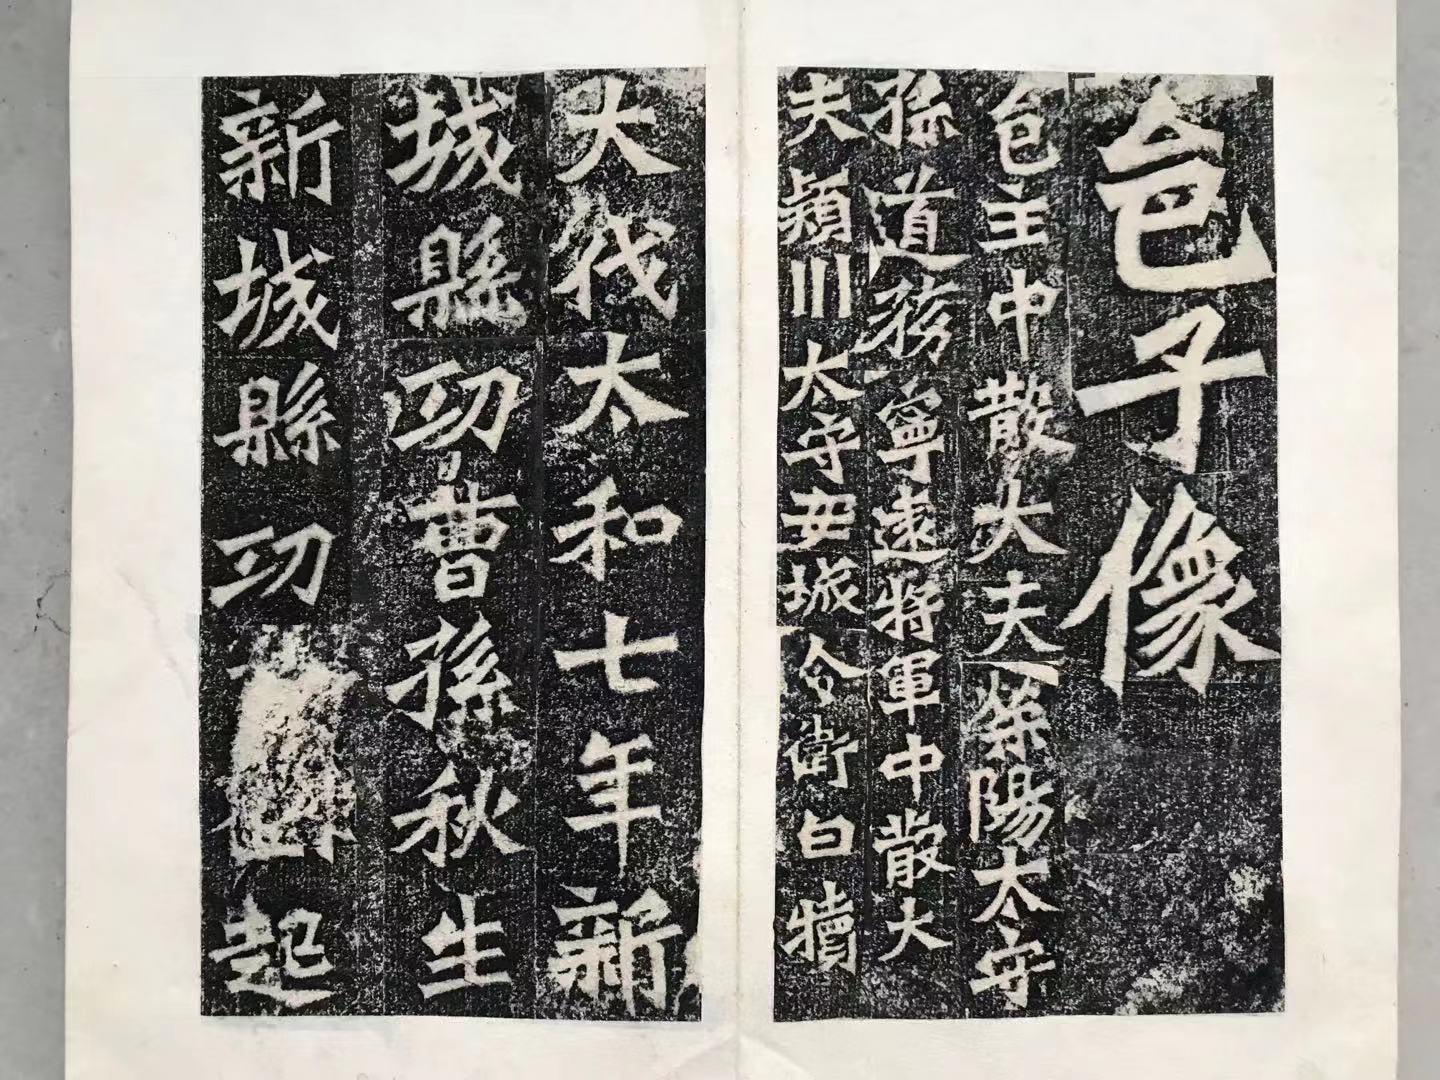 邑子像
邑主中散大夫荥陽太守
孫道務寧遠將軍中散大
夫潁川太守安城令衛白犢
大代太和七年新
城縣功曹孫秋生
新城縣功起